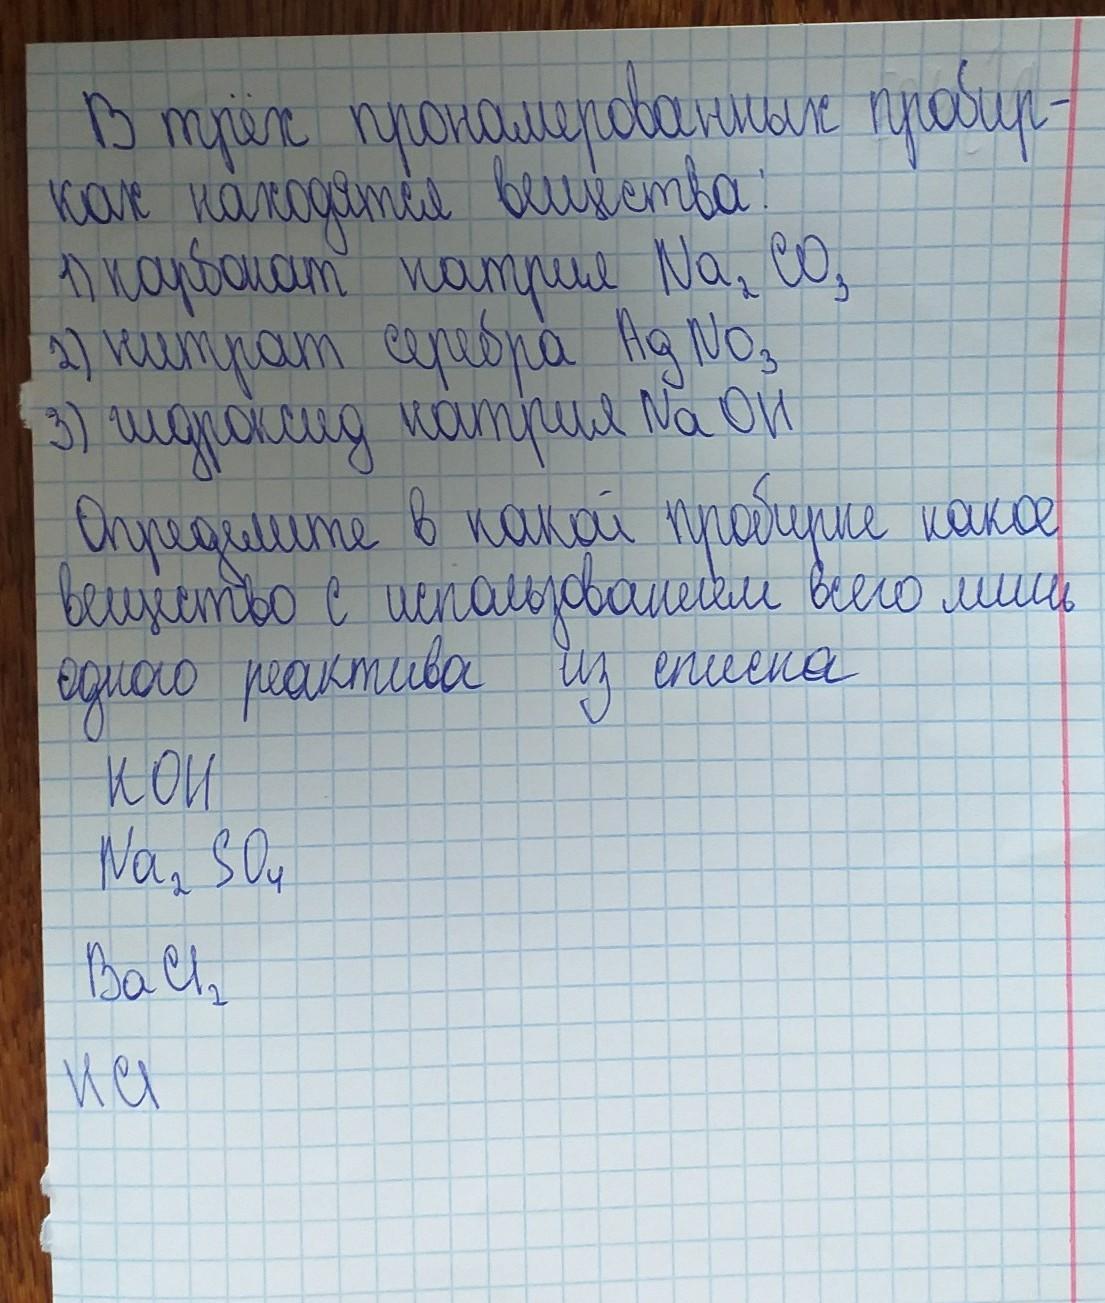 В трёх пронамерованных пробир-
ках находятся вещества:
1) карбонат натрия Na₂CO₃
2) нитрат серебра AgNO₃
3) гидроксид натрия NaOH
Определите в какой пробирке какое
вещество с использованием всего лишь
одного реактива из списка
KOH
Na₂SO₄
BaCl₂
HCl